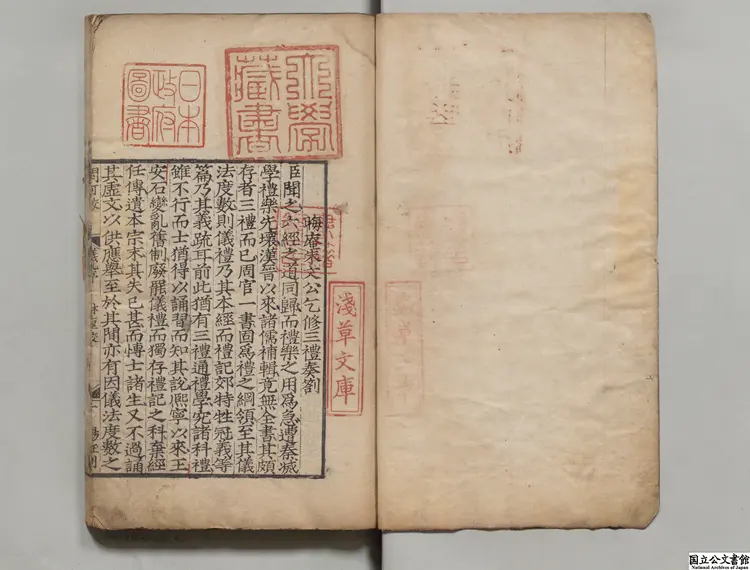 大學
藏書
日本
政府
圖書
晦庵朱文公乞修三禮奏劄
臣聞之六經之道同歸而禮樂之用爲急遭秦滅
學禮樂先壞漢晉以來諸儒補輯竟無全書其頗
存者三禮而已周官一書固爲禮之綱領至其儀
法度數則儀禮乃其本經而禮記郊特牲冠義等
篇乃其義疏耳前此猶有三禮通禮學究諸科禮
雖不行而士猶得以誦習而知其說熙寧以來王
安石變亂舊制廢罷儀禮而獨存禮記之科棄經
任傳遺本宗末其失已甚而博士諸生又不過誦
其虛文以供應舉至於其間亦有因儀法度數之
淺草文庫
国立公文書館
National Archives of Japan